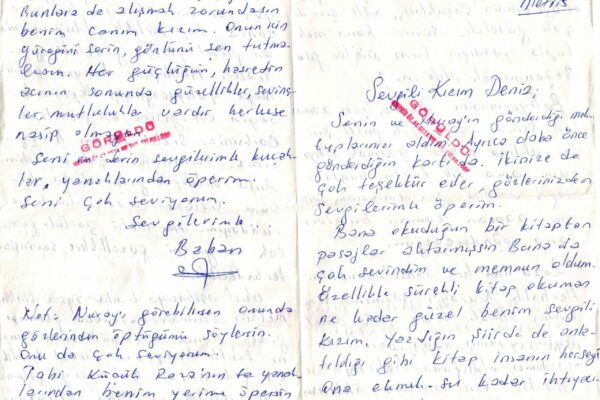 Bunlara da alışmak zorundasın
benim canım kızım. Onun için
yüreğini serin, gönlünü şen tutma-
lısın. Her güçlüğün, hasretin
acının sonunda güzellikler, sevinç-
ler, mutluluklar vardır herkese
nasip olmayan.
GÖRÜLDÜ
Seni en derin sevgilerimle kucak-
lar, yanaklarından öperim.
Seni çok seviyorum.
Sevgilerimle..
Baban
Not: Nuray'ı görebilirsen onunda
gözlerinden öptüğümü söylersin.
Onu da çok seviyorum.
Tabi Küçük
larından benim yerime öpersin
Sevgili Kızım Deniz,
GÖRÜLDÜ
Senin ve Nuray'ın gönderdiği mek-
tuplarınızı aldım. Ayrıca daha önce
gönderdiğin kartı da. İkinize de
çok teşekkür eder, gözlerinizden
sevgilerimle öperim.
Bana okuduğun bir kitaptan
pasajlar aktarmışsın. Buna da
çok sevindim ve memnun oldum.
Özellikle sürekli kitap okuman
ne kadar güzel benim sevgili
kızım. Yazdığın şiirde de anla-
tıldığı gibi kitap insanın herşeyi
Ona ekmek-su kadar ihtiyac